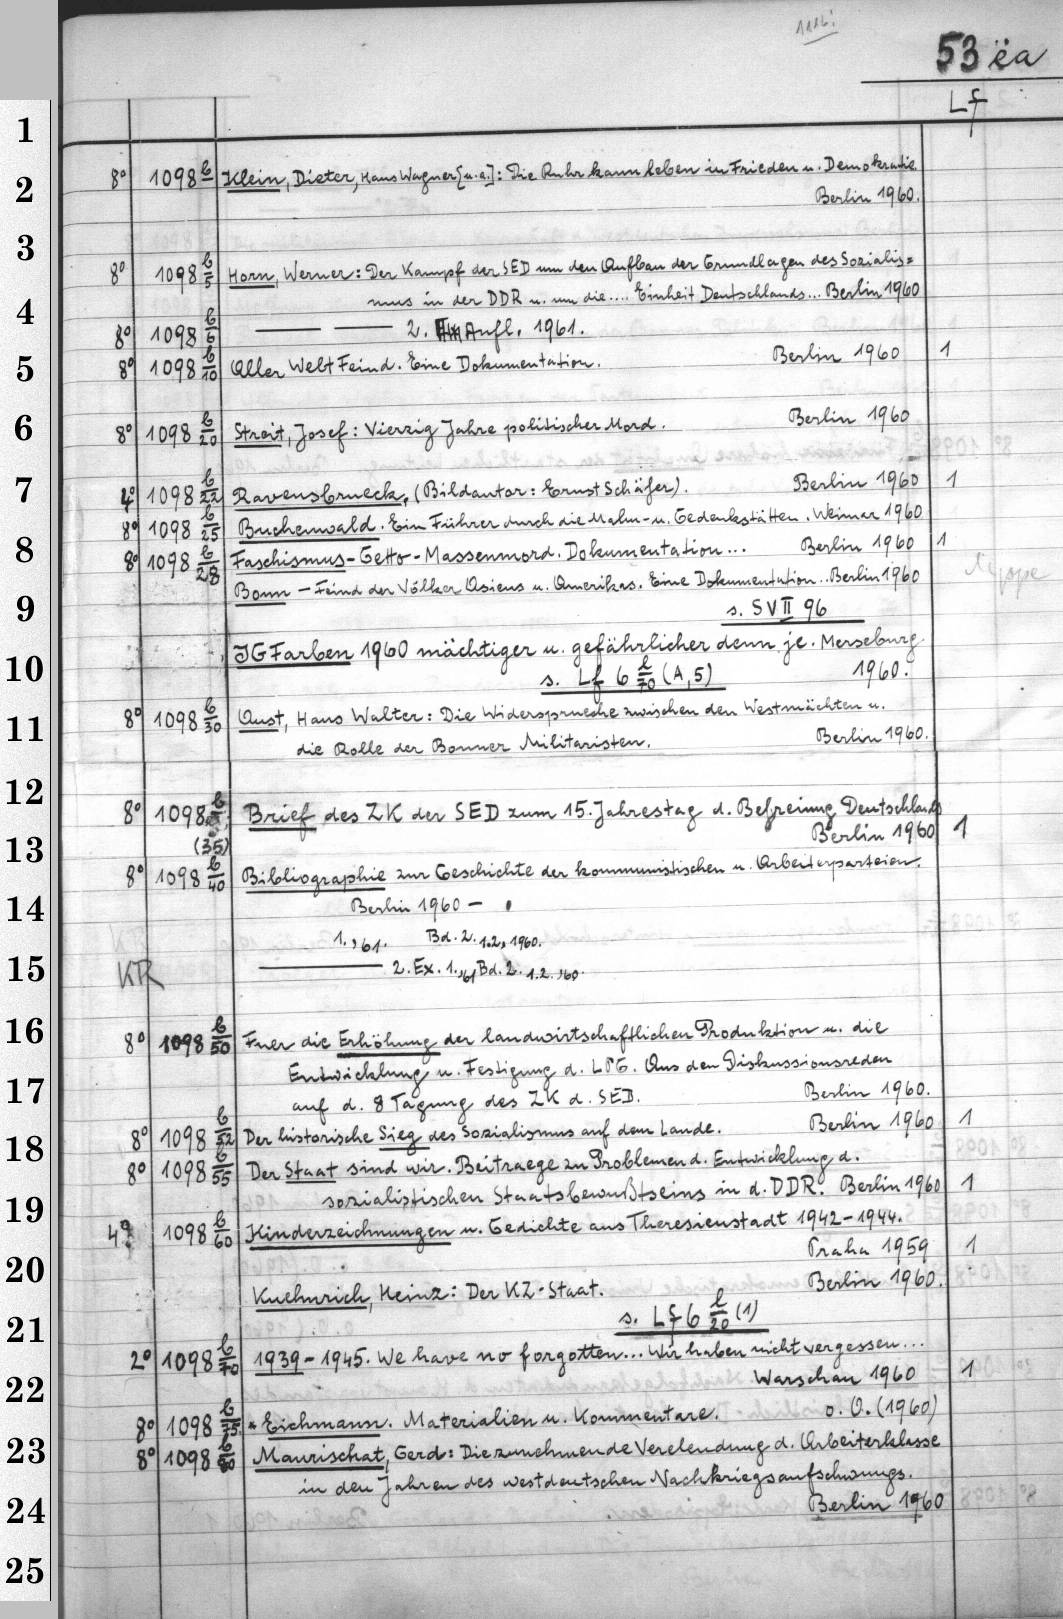 1116.
53 ëa
Lf
1
2
3
4
5
6
7
8
9
10
11
12
13
14
15
16
17
18
19
20
21
22
23
24
25
8° 1098 b Klein, Dieter, Hans Wagner [u.a.]: Die Ruhr kann leben in Frieden u. Demokratie.
Berlin 1960.
8° 1098 b/5 Horn, Werner: Der Kampf der SED um den Aufbau der Grundlagen des Sozialis=
mus in der DDR u. um die .... Einheit Deutschlands... Berlin 1960
8° 1098 b/6 —— —— 2. Aufl. 1961.
8° 1098 b/10 Aller Welt Feind. Eine Dokumentation. Berlin 1960 1
8° 1098 b/20 Streit, Josef: Vierzig Jahre politischer Mord. Berlin 1960
4° 1098 b/22 Ravensbrueck. (Bildautor: Ernst Schäfer). Berlin 1960 1
8° 1098 b/25 Buchenwald. Ein Führer durch die Mahn- u. Gedenkstätten. Weimar 1960
8° 1098 b/28 Faschismus-Getto-Massenmord. Dokumentation... Berlin 1960 1
Bonn – Feind der Völker Asiens u. Amerikas. Eine Dokumentation.. Berlin 1960
s. SV II 96
IG Farben 1960 mächtiger u. gefährlicher denn je. Merseburg
s. Lf 6 l/70 (A,5) 1960.
8° 1098 b/30 Aust, Hans Walter: Die Widersprueche zwischen den Westmächten u.
die Rolle der Bonner Militaristen. Berlin 1960.
8° 1098 b Brief des ZK der SED zum 15. Jahrestag d. Befreiung Deutschlands
(35) Berlin 1960 1
8° 1098 b/40 Bibliographie zur Geschichte der kommunistischen u. Arbeiterparteien.
Berlin 1960 – .
1., 61. Bd. 2. 1.2, 1960.
KR —— 2. Ex. 1., 61 Bd. 2. 1.2. ,60.
8° 1098 b/50 Fuer die Erhöhung der landwirtschaftlichen Produktion u. die
Entwicklung u. Festigung d. LPG. Aus den Diskussionsreden
auf d. 8 Tagung des ZK d. SED. Berlin 1960.
8° 1098 b/52 Der historische Sieg des Sozialismus auf dem Lande. Berlin 1960 1
8° 1098 b/55 Der Staat sind wir. Beitraege zu Problemen d. Entwicklung d.
sozialistischen Staatsbewußtseins in d. DDR. Berlin 1960 1
4° 1098 b/60 Kinderzeichnungen u. Gedichte aus Theresienstadt 1942–1944.
Praha 1959 1
Kuehnrich, Heinz: Der KZ-Staat. Berlin 1960.
s. Lf 6 l/20 (1)
2° 1098 b/70 1939–1945. We have no forgotten... Wir haben nicht vergessen...
Warschau 1960 1
8° 1098 b/75 Eichmann. Materialien u. Kommentare. o. O. (1960)
8° 1098 b/80 Maurischat, Gerd: Die zunehmende Verelendung d. Arbeiterklasse
in den Jahren des westdeutschen Nachkriegsaufschwungs.
Berlin 1960